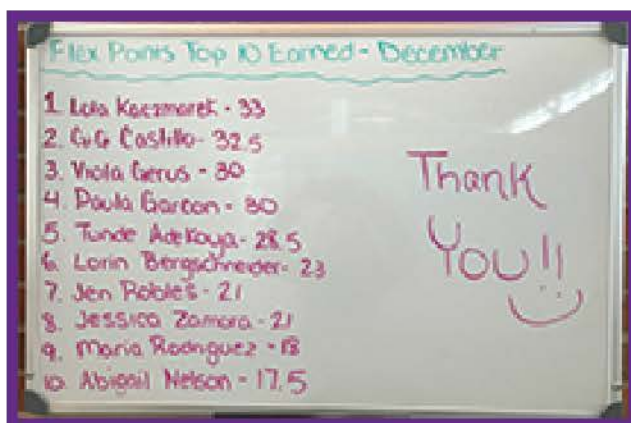 Flex Points Top 10 Earned - December
1. Lola Kaczmarek - 33
2. GiG Castillo - 32.5
3. Viola Gerus - 30
4. Paula Garcon - 30
5. Tunde Adekoya - 28.5
6. Lorin Bergschneider - 23
7. Jen Robles - 21
8. Jessica Zamora - 21
9. Maria Rodriguez - 18
10. Abigail Nelson - 17.5
Thank
You!!